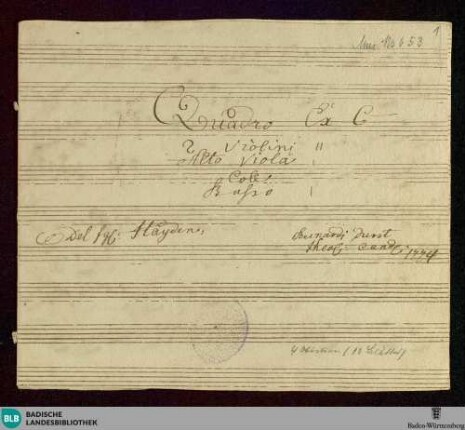 1
Mus. Hs 653
Quadro Ex C
2 Violini "
Alto Viola
Col:
Basso
Del Sigl: Haydn.
Bernardi Durst
theol: Cand: 1774
4 Stimmen (12 Blätter)
BLB BADISCHE
LANDESBIBLIOTHEK
Baden-Württemberg